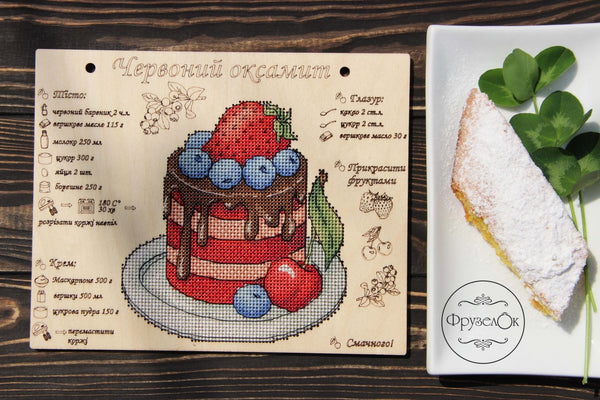 Червоний оксамит
Тісто:
червоний барвник 2 ч.л.
вершкове масло 115 г
молоко 250 мл
цукор 300 г
яйця 2 шт.
борошно 250 г
180 С°
30 хв
розрізати коржі навпіл
Крем:
Маскарпоне 500 г
вершки 500 мл
цукрова пудра 150 г
перемастити
коржі
Глазур:
какао 2 ст.л.
цукор 2 ст.л.
вершкове масло 30 г
Прикрасити
фруктами
Смачного!
ФрузелОк